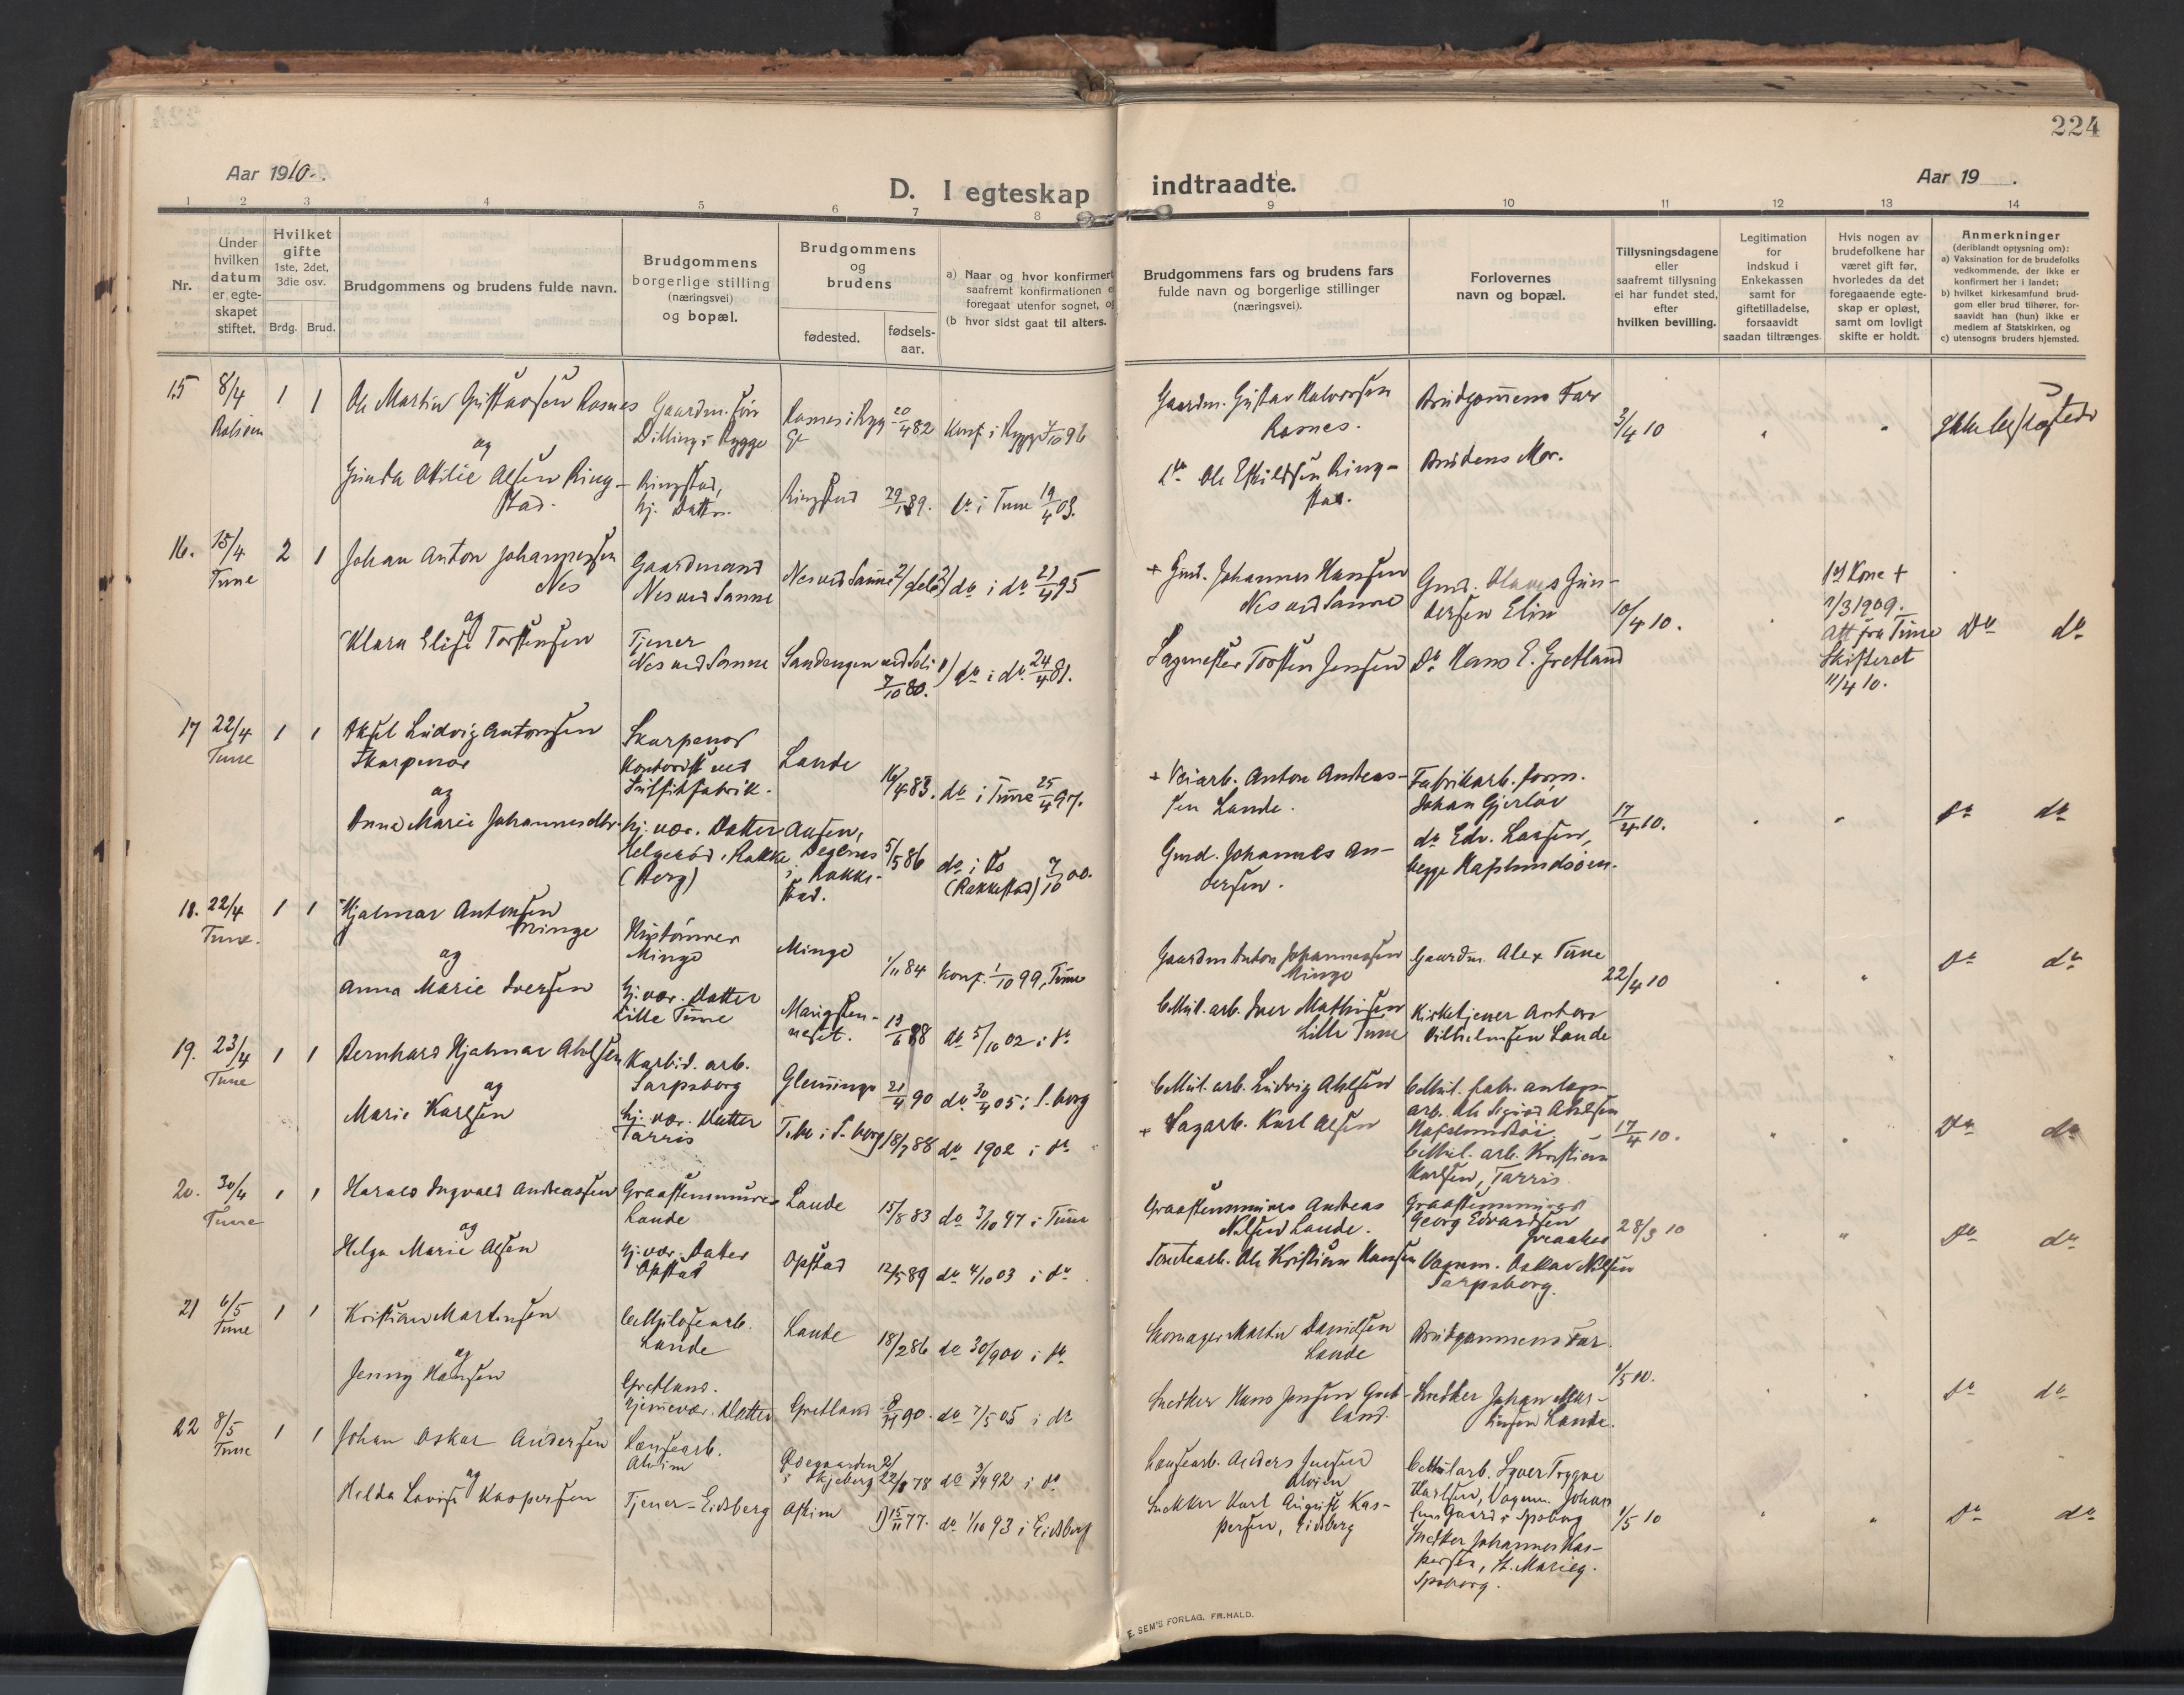 224
Aar 1910.
D. I egteskap indtraadte.
Aar 19 .
1 2 3 4 5 6 7 8 9 10 11 12 13 14
Nr.
Under hvilken datum er egteskapet stiftet.
Hvilket gifte 1ste, 2det, 3die osv.
Brdg. Brud.
Brudgommens og brudens fulde navn.
Brudgommens borgerlige stilling (næringsvei) og bopæl.
Brudgommens og brudens
fødested.
fødsels-aar.
a) Naar og hvor konfirmert
saafremt konfirmationen e
foregaat utenfor sognet, og
(b hvor sidst gaat til alters.
Brudgommens fars og brudens fars
fulde navn og borgerlige stillinger
(næringsvei).
Forlovernes
navn og bopæl.
Tillysningsdagene
eller
saafremt tillysning
ei har fundet sted,
efter
hvilken bevilling.
Legitimation
for
indskud i
Enkekassen
samt for
giftetilladelse,
forsaavidt
saadan tiltrænges.
Hvis nogen av
brudefolkene har
været gift før,
hvorledes da det
foregaaende egte-
skap er opløst,
samt om lovligt
skifte er holdt.
Anmerkninger
(deriblandt oplysning om):
a) Vaksination for de brudefolks
vedkommende, der ikke er
konfirmert her i landet;
b) hvilket kirkesamfund brud-
gom eller brud tilhører, for-
saavidt han (hun) ikke er
medlem af Statskirken, og
c) utensogns bruders hjemsted.
15 8/4 1 1 Ole Martin Gustavsen Rosnes
Gaardm. søn
Dilling i Rygge
Rosnes i Rygge 20/4 82 Konf. i Rygge 4/10 96
Gaardm. Gustav Halvorsen
Rosnes.
Brudgommens Far
3/4 10
og
Gunda Otilie Olsen Ring-
stad.
Ringstad,
hj. Datter.
Ringstad 29/1 89. do i Tune 19/4 03.
do Ole Eskildsen Ring-
stad.
Brudens Mor.
16. 15/4 Tune 2 1 Johan Anton Johannessen
Nes
Gaardmand
Nes ved Sanne
Nes ved Sanne do i do 21/4 95
+ Gmd. Johannes Hansen
Nes ved Sanne
Gmd. Olaves Gun-
dersen Elin
10/4 10.
1st Kone +
1/3 1909.
Att fra Tune
Skifteret
11/4 10.
do do
og
Klara Elise Torstensen
Tjener
Nes ved Sanne
Sandengen ved Soli 7/10 80. do i do 24/4 81.
Sagmester Torsten Jensen
do Hans E. Gretland
17 22/4 Tune 1 1 Aksel Ludvig Antonsen
Skarpenor
Skarpenor
Kontorist ved
Sulfitfabrik.
Lande 16/4 83. do i Tune 25/4 97.
+ Veiarb. Anton Andreas-
sen Lande.
Fabrikarb. form.
Johan Gjerløv
17/4 10.
do do
og
Anna Marie Johannesdtr.
hj. vær. Datter
Helgerød, Rakke
(Berg)
Degernes
i Rakke-
stad.
5/5 86 do i Os
(Rakkestad) 7/10 00.
Gmd. Johannes An-
dersen.
do Edv. Larsen,
begge Hafslundsøen.
18. 22/4 Tune. 1 1 Hjalmar Antonsen
Minge
Hustømrer
Minge
Minge 1/11 84 konf. 1/10 99, Tune
Gaardm Anton Johannessen
Minge
Gaardm. Alex Tune
22/4 10
do do
og
Anna Marie Iversen
hj. vær. Datter
Lille Tune
13/6 88 do 5/10 02 i do
Cellul. arb. Iver Mathisen
Lille Tune
Kirketjener Anton
Vilhelmsen Lande
19. 23/4 Tune 1 1 Bernhard Hjalmar Ahlsen
Karbid. arb.
Sarpsborg
Glemminge 21/4 90 do 30/4 05 i S.borg
Cellul. arb. Ludvig Ahlsen
Cellul. fabr. anlægs-
arb. Ole Sigurd Ahlsen
Hafslundsøi
17/4 10.
do do
og
Marie Karlsen
hj. vær. Datter
Tarris
Tune i S.borg 18/7 88 do 1902 i do
+ Sagarb. Karl Olsen
Cellul. arb. Kristian
Karlsen, Tarris.
20. 30/4 Tune 1 1 Harald Ingvald Andreassen
Graastensmurer
Lande
Lande 15/8 83 do 3/10 97 i Tune
Graastensmurer Andreas
Nilsen Lande.
Graastensmurer
Georg Edvardsen
Greaaker
28/3 10
do do
og
Helga Marie Olsen
hj. vær. Datter
Opstad
Opstad 12/5 89 do 4/10 03 i do
Tomtearb. Ole Kristian Hansen
Vognm. Oskar Nilsen
Sarpsborg.
21 6/5 Tune 1 1 Kristian Martinsen
Cellulosearb.
Lande
Lande 18/2 86 do 30/9 00 i do
Skomager Martin Danielsen
Lande
Brudgommens Far.
1/5 10.
og
Jenny Hansen
Gretland.
hjemmevær. Datter
Gretland 8/11 90. do 7/5 05 i do
Snedker Hans Jensen Gret-
land.
Snedker Johan Mar-
tinsen Lande.
do do
22 8/5 Tune 1 1 Johan Oskar Andersen
Lænsearb.
Alvim
i Skjeberg 22/8 78 do 3/4 92 i do
Lænsearb. Anders Jensen
Alvim
Cellul arb. Syver Trygve
Karlsen, Vognm. Johan
1/5 10
do do
og
Hilda Lovise Kaspersen
Tjener - Eidsberg
Askim 15/11 77. do 1/10 93 i Eidsberg
Snekker Karl August Kas-
persen, Eidsberg
Snedker Johannes Kas-
persen, St. Marieg.
Spsborg.
E. SEM'S FORLAG, FR.HALD.